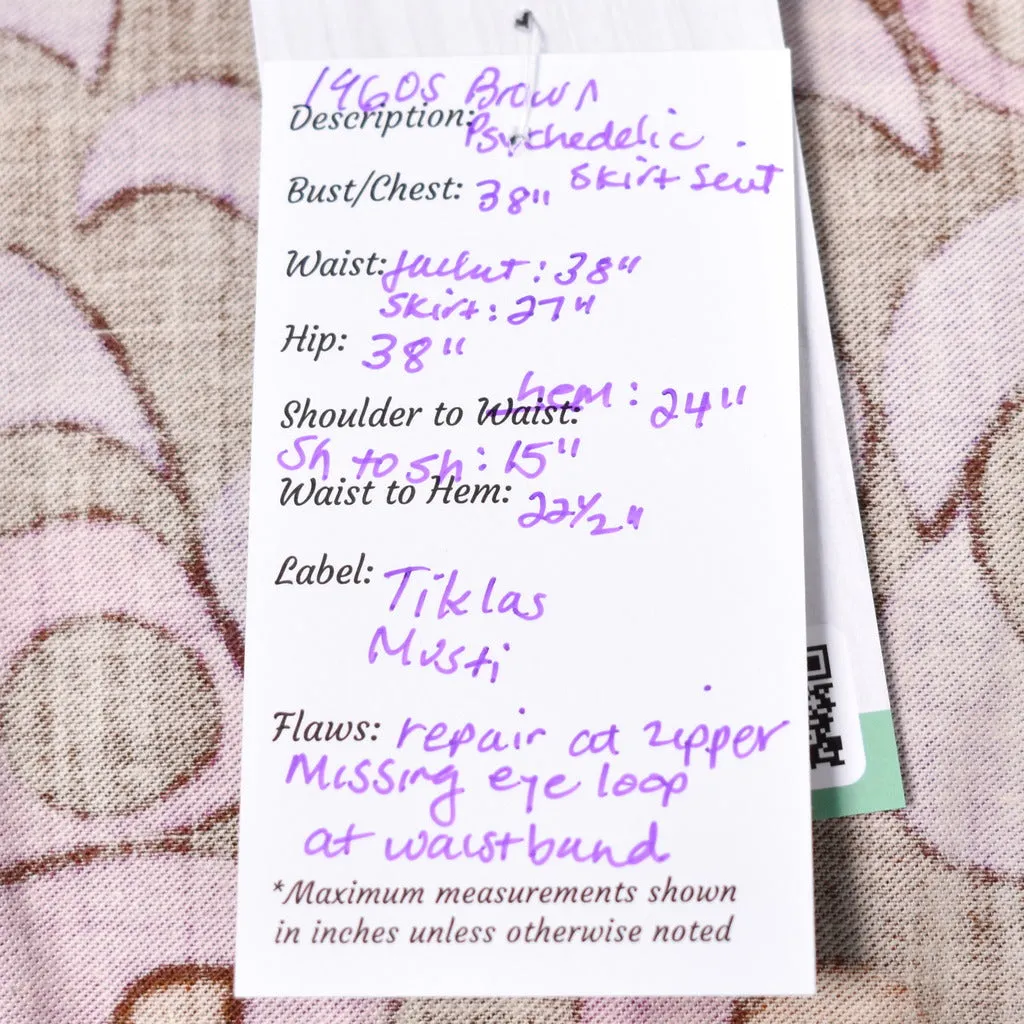 1960s Brown
Description: Psychedelic
skirt seut
Bust/Chest: 38"
Waist: Jacket: 38"
skirt: 27"
Hip: 38"
hem: 24"
Shoulder to Waist:
Sh to sh: 15"
Waist to Hem: 22 1/2"
Label: Tiklas
Musti
Flaws: repair at zipper
Missing eye loop
at waistband
*Maximum measurements shown
in inches unless otherwise noted